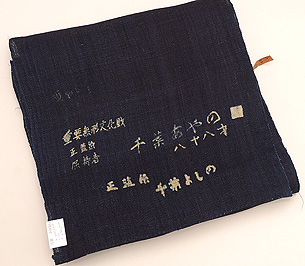 重要無形文化財
正藍染
保持者
千葉あやの
八十八才
正藍染 千葉よしの